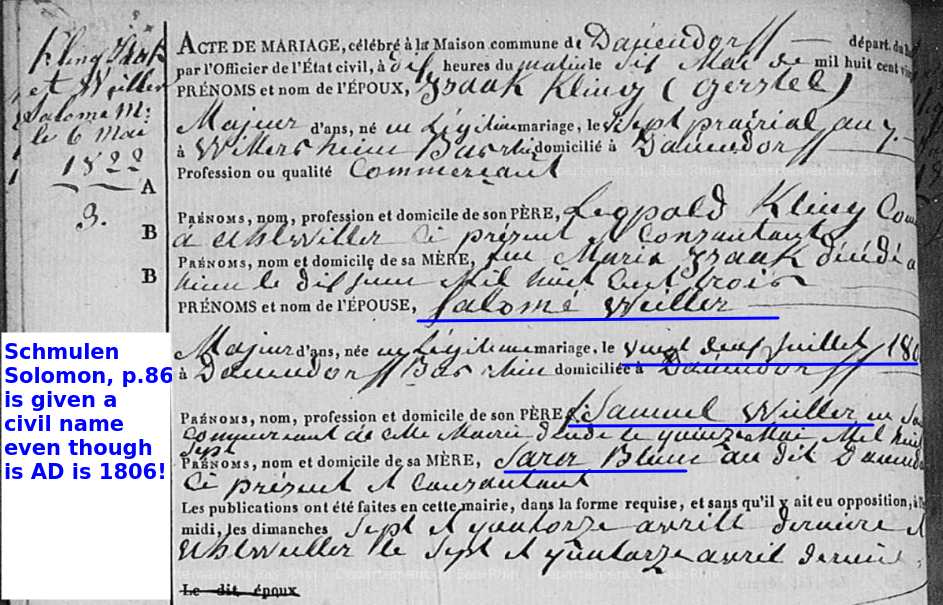 Kling Isaak
et Weiller
Salome M:
le 6 Mai
1822
A
3.
B
B
ACTE DE MARIAGE, célébré à la Maison commune de Dauendorff — départ. du
par l'Officier de l'État civil, à dix heures du matin le six Mai de mil huit cent
PRÉNOMS et nom de l'ÉPOUX, Isaak Kling (Gerstel)
Majeur d'ans, né en légitime mariage, le sept prairial an 7.
à Wittersheim Bas rhin domicilié à Dauendorff
Profession ou qualité Commerçant
PRÉNOMS, nom, profession et domicile de son PÈRE, Léopold Kling
à Uhlwiller ci présent et consantant
PRÉNOMS, nom et domicile de sa MÈRE, feu Maria Isaak décédé a
le dix juin Mil huit cent trois
PRÉNOMS et nom de l'ÉPOUSE, Salomé Weiller
Majeur d'ans, née en légitime mariage, le vingt deux juillet 180
à Dauendorff Bas rhin domiciliée à Dauendorff
PRÉNOMS, nom, profession et domicile de son PÈRE, Samuel Weiller en
Commercant de cette Mairie décédé le quinze Mai Mil huit
sept
PRÉNOMS, nom et domicile de sa MÈRE, Sarer Blum au dit Dauendo
ci présent et consantant
Les publications ont été faites en cette mairie, dans la forme requise, et sans qu'il y ait eu opposition, à
midi, les dimanches sept et quatorze avrill dernier et
Uhlwiller le sept et quatorze avril dernier
Le dit époux
Schmulen
Solomon, p.86
is given a
civil name
even though
is AD is 1806!